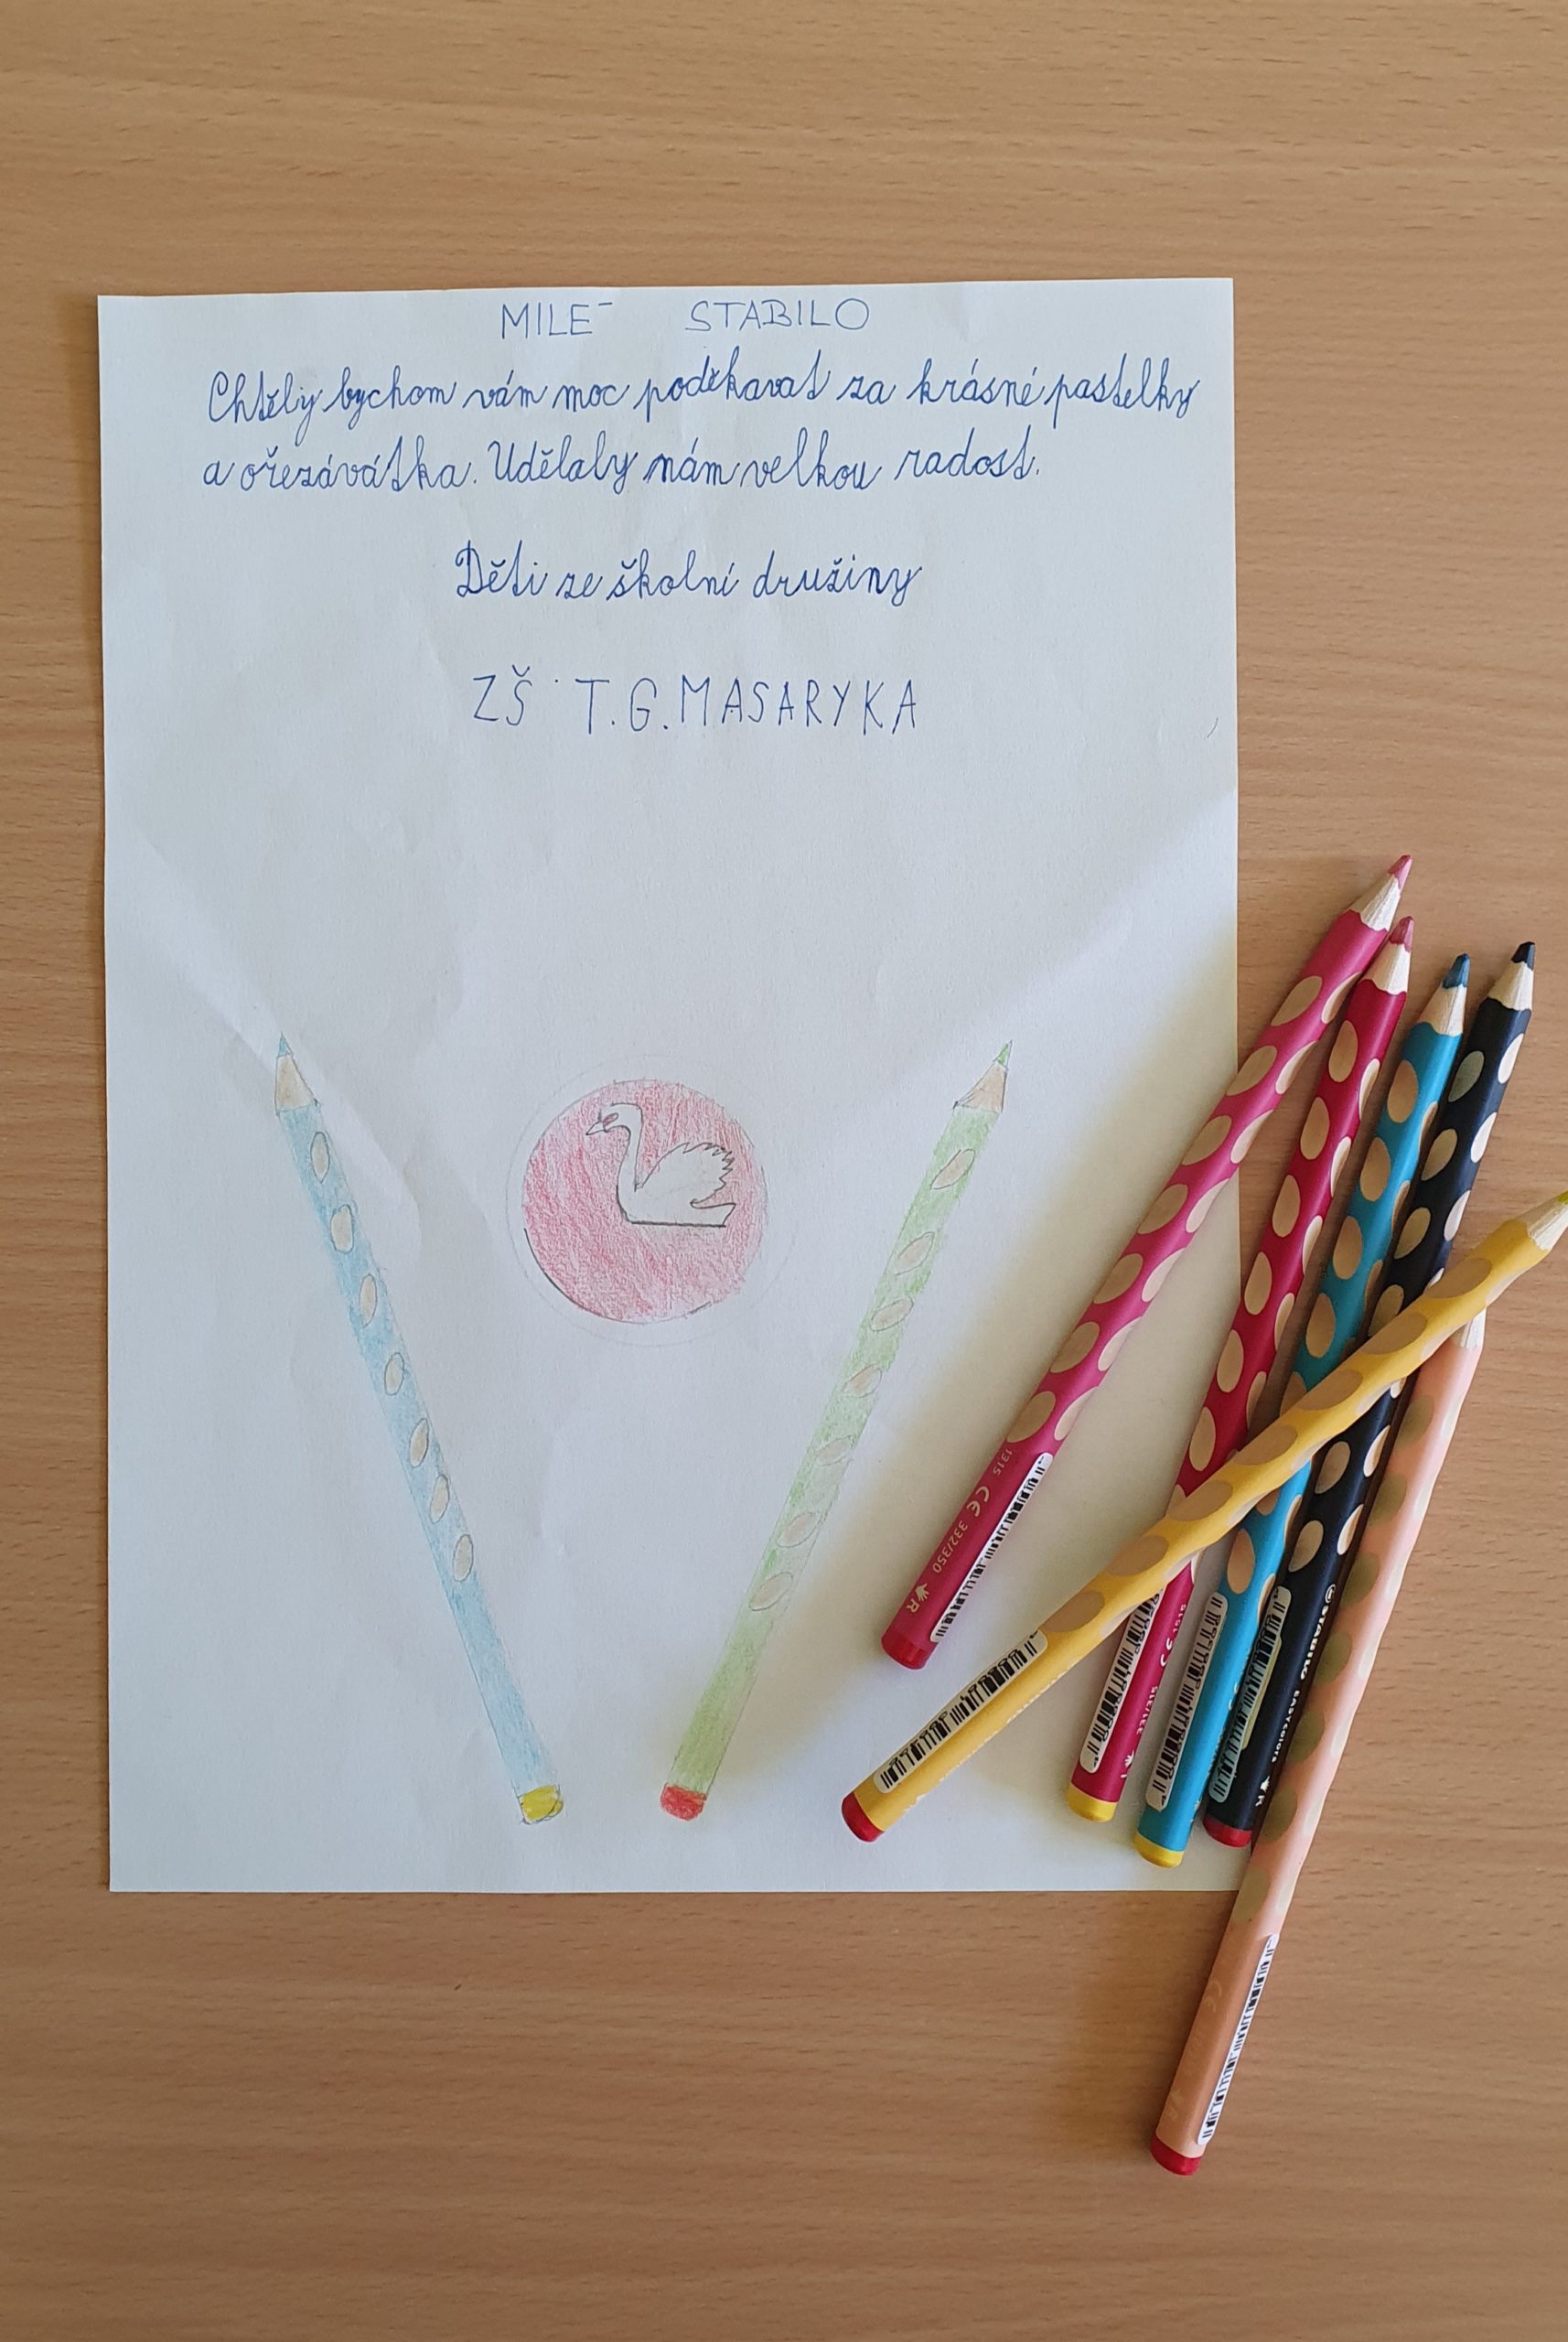 MILÉ STABILO
Chtěly bychom vám moc poděkavat za krásné pastelky
a ořezávátka. Udělaly nám velkou radost.
Děti ze školní družiny
ZŠ T.G.MASARYKA
1315 CE 332/350 R
STABILO EASYcolors R